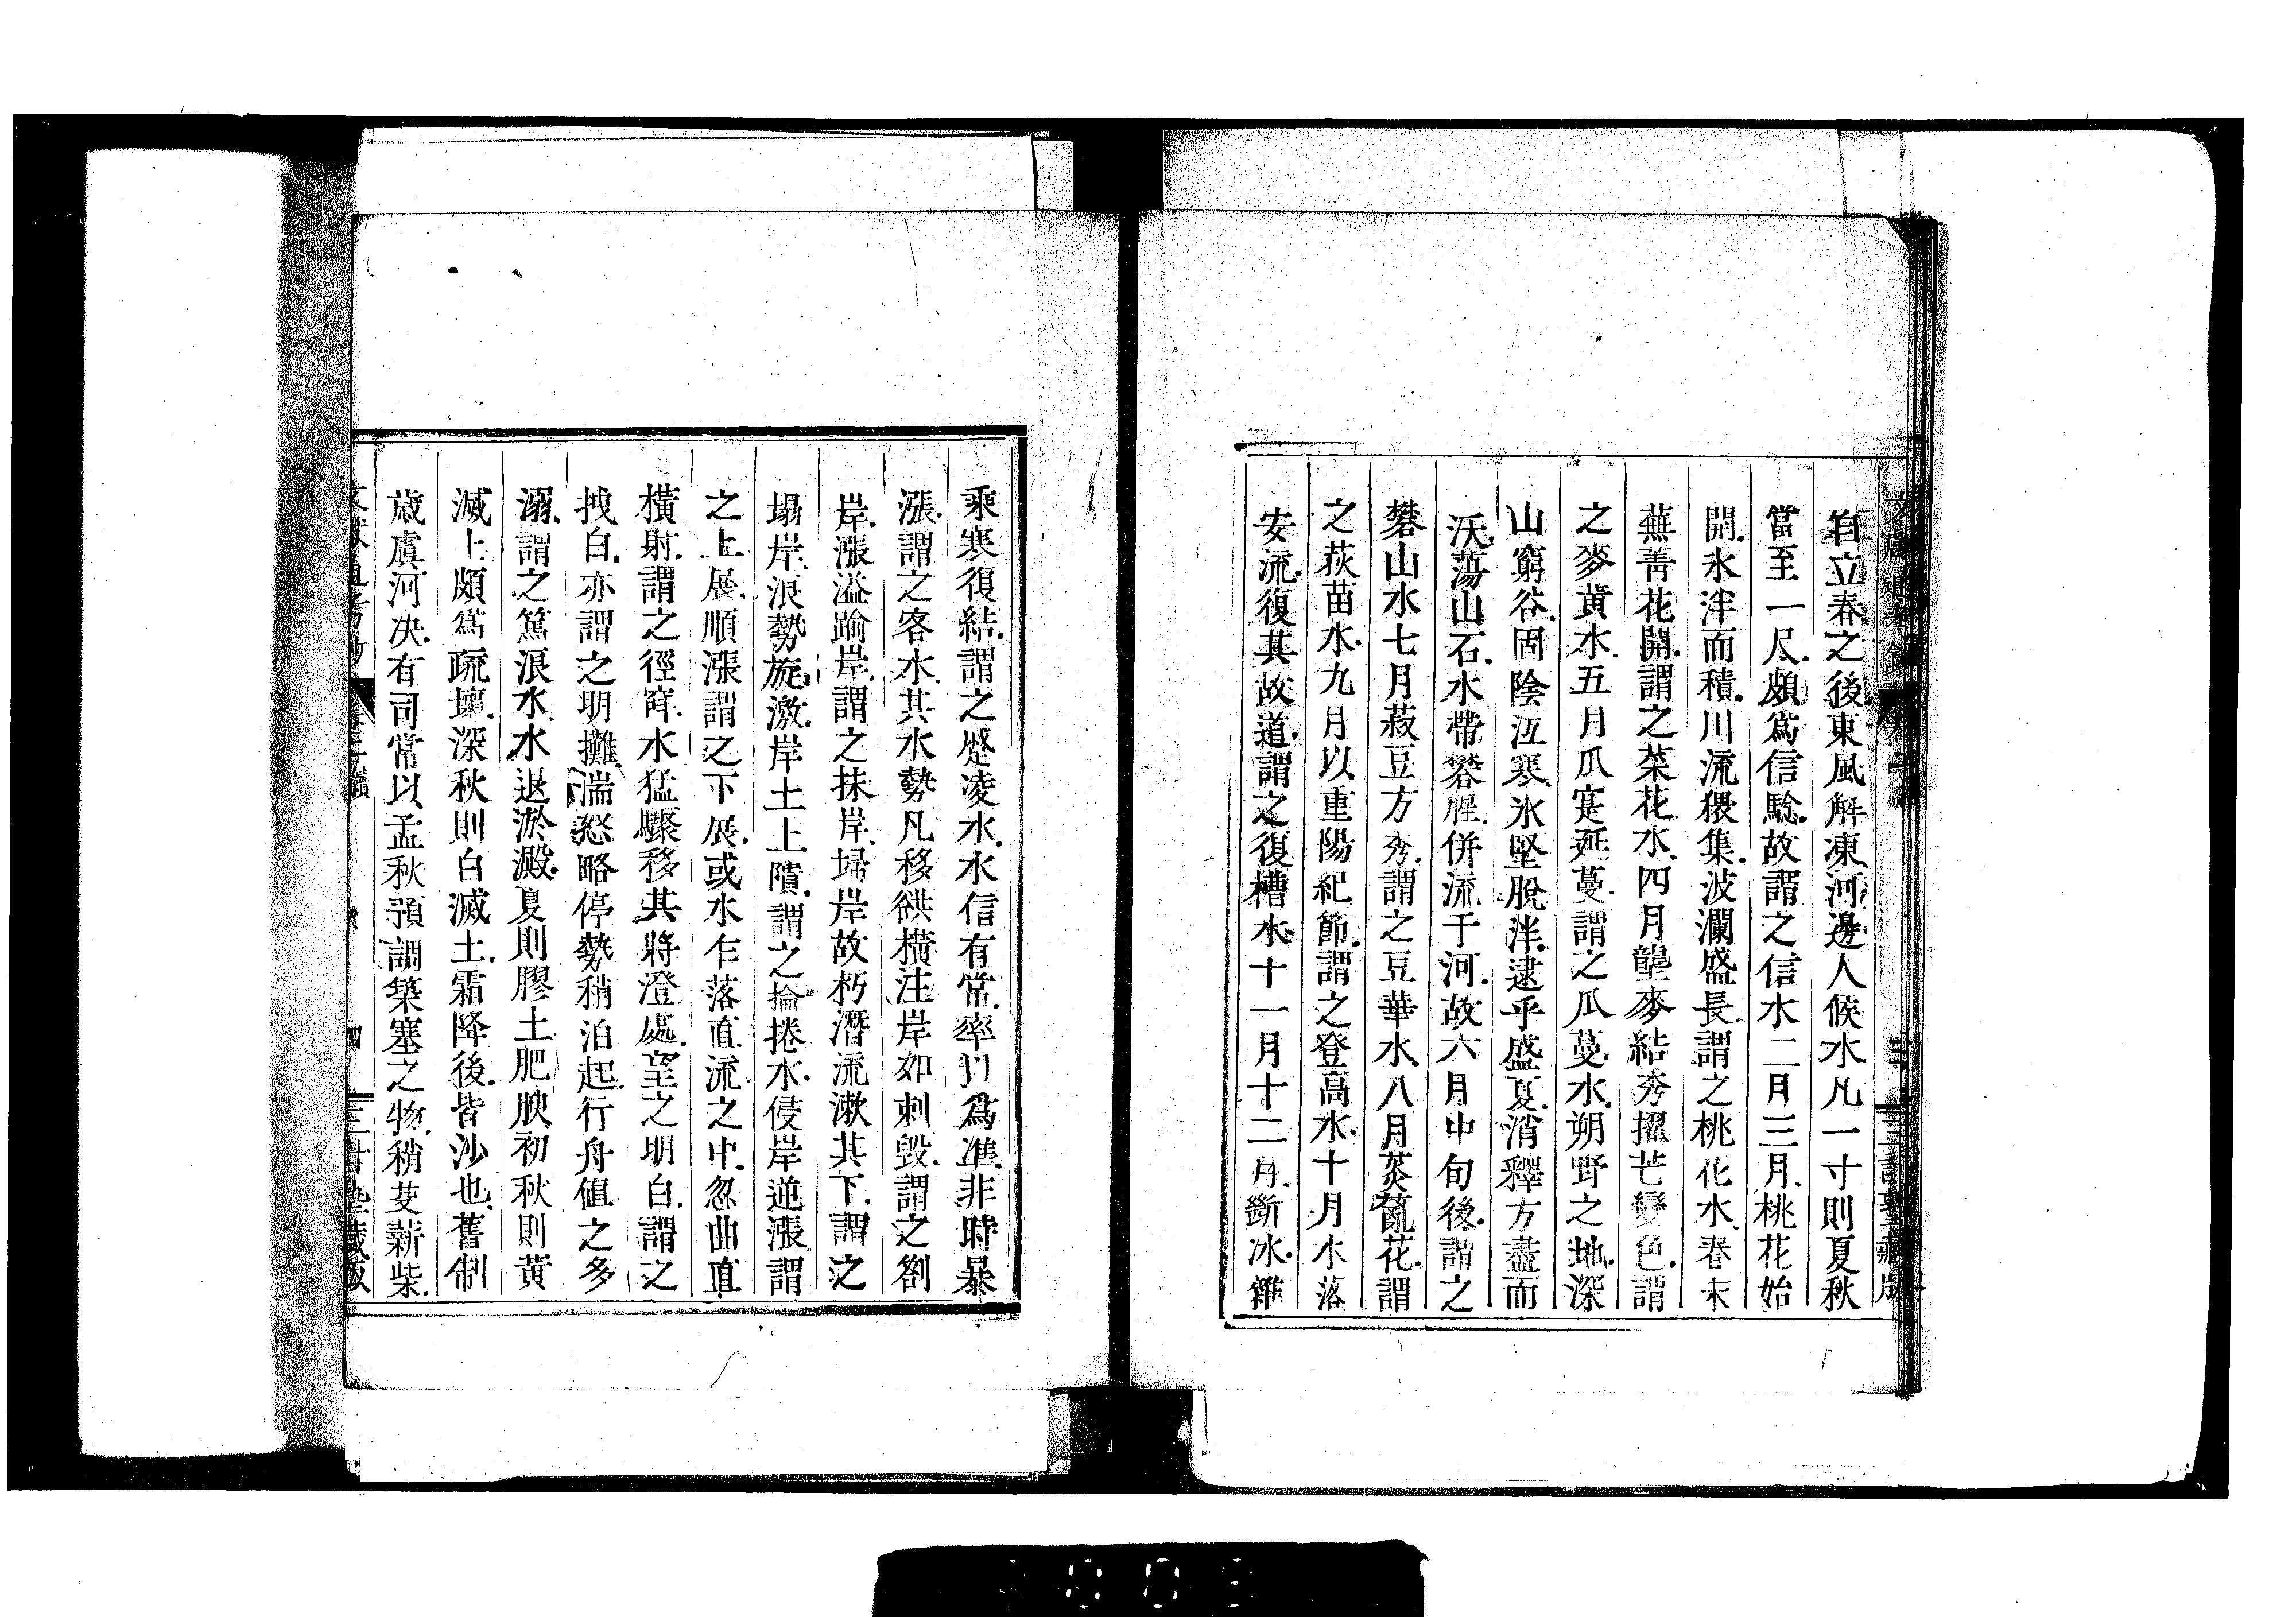 自立春之後東風解凍河邊人候水凡一寸則夏秋
當至一尺頗爲信驗故謂之信水二月三月桃花始
開氷泮而積川流猥集波瀾盛長謂之桃花水春末
蕪菁花開謂之菜花水四月壟麥結秀擢芒變色謂
之麥黃水五月瓜寔延蔓謂之瓜蔓水朔野之地深
山窮谷固陰沍寒氷堅脫泮逮乎盛夏消釋方盡而
沃蕩山石水帶礬腥併流于河故六月中旬後謂之
礬山水七月菽豆方秀謂之豆華水八月菼薍花謂
之荻苗水九月以重陽紀節謂之登高水十月水落
安流復其故道謂之復槽水十一月十二月斷冰雜
乘寒復結謂之蹙凌水水信有常率以爲准非時暴
漲謂之客水其水勢凡移谼橫注岸如刺毀謂之劄
岸漲溢踰岸謂之抹岸埽岸故朽潛流漱其下謂之
塌岸浪勢旋激岸土上隤謂之掄捲水侵岸逆漲謂
之上展順漲謂之下展或水乍落直流之中忽曲直
橫射謂之徑窜水猛驟移其將澄處望之明白謂之
拽白亦謂之明攤湍怒略停勢稍泊起行舟値之多
溺謂之篤浪水水退淤澱夏則膠土肥腴初秋則黃
滅土頗爲疏壤深秋則白滅土霜降後皆沙也舊制
歲虞河决有司常以孟秋預調築塞之物稍芟薪柴